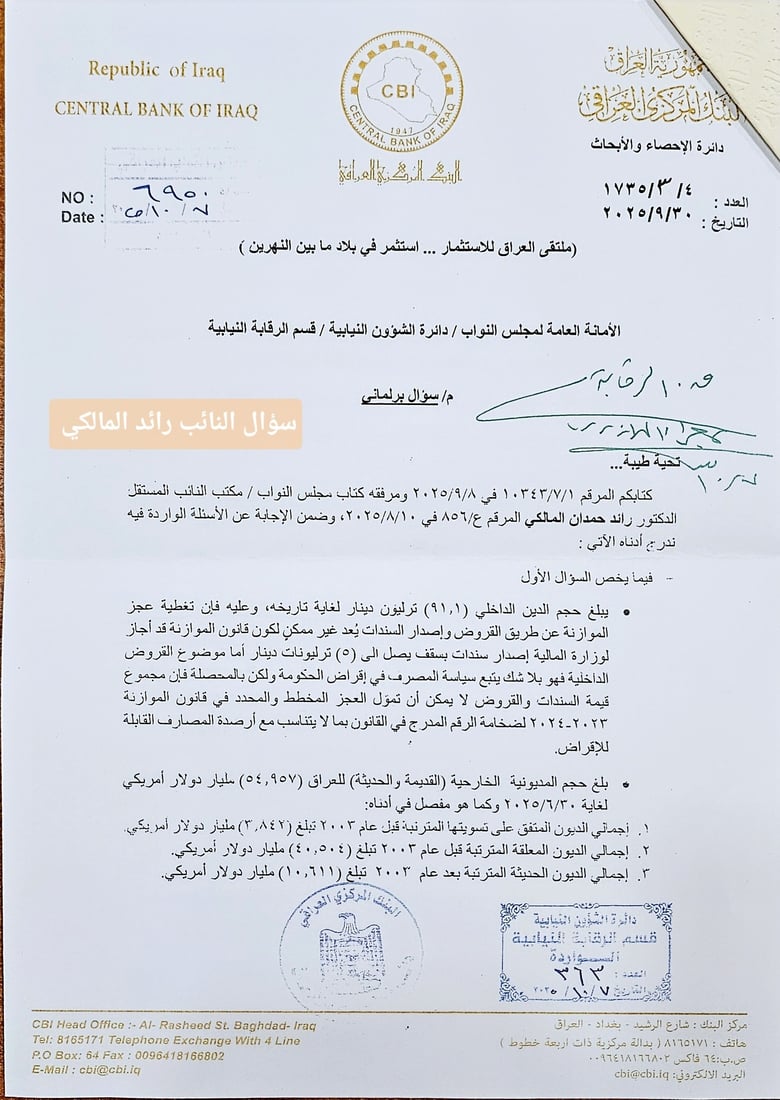 Republic of Iraq
CENTRAL BANK OF IRAQ
CBI
1947
CENTRAL BANK OF IRAQ
البنك المركزي العراقي
جمهورية العراق
البنك المركزي العراقي
دائرة الإحصاء والأبحاث
NO : ٦٩٥٠
Date :
العدد : ١٧٣٥/٣/٤
التاريخ : ٢٠٢٥/٩/٣٠
(ملتقى العراق للاستثمار ... استثمر في بلاد ما بين النهرين )
الأمانة العامة لمجلس النواب / دائرة الشؤون النيابية / قسم الرقابة النيابية
م/ سؤال برلماني
سؤال النائب رائد المالكي
تحية طيبة...
كتابكم المرقم ١٠٣٤٣/٧/١ في ٢٠٢٥/٩/٨ ومرفقه كتاب مجلس النواب / مكتب النائب المستقل
الدكتور رائد حمدان المالكي المرقم ع/٨٥٦ في ٢٠٢٥/٨/١٠، وضمن الإجابة عن الأسئلة الواردة فيه
ندرج أدناه الآتي :
- فيما يخص السؤال الأول
• يبلغ حجم الدين الداخلي (٩١,١) ترليون دينار لغاية تاريخه، وعليه فإن تغطية عجز
الموازنة عن طريق القروض وإصدار السندات يُعد غير ممكن لكون قانون الموازنة قد أجاز
لوزارة المالية إصدار سندات بسقف يصل الى (٥) ترليونات دينار أما موضوع القروض
الداخلية فهو بلا شك يتبع سياسة المصرف في إقراض الحكومة ولكن بالمتصلة فإن مجموع
قيمة السندات والقروض لا يمكن أن تموّل العجز المخطط والمحدد في قانون الموازنة
٢٠٢٣-٢٠٢٤ لضخامة الرقم المدرج في القانون بما لا يتناسب مع أرصدة المصارف القابلة
للإقراض.
• بلغ حجم المديونية الخارجية (القديمة والحديثة) للعراق (٥٤,٩٥٧) مليار دولار أمريكي
لغاية ٢٠٢٥/٦/٣٠ وكما هو مفصل في أدناه:
١. إجمالي الديون المتفق على تسويتها المترتبة قبل عام ٢٠٠٣ تبلغ (٣,٨٤٢) مليار دولار أمريكي.
٢. إجمالي الديون المعلقة المترتبة قبل عام ٢٠٠٣ تبلغ (٤٠,٥٠٤) مليار دولار أمريكي.
٣. إجمالي الديون الحديثة المترتبة بعد عام ٢٠٠٣ تبلغ (١٠,٦١١) مليار دولار أمريكي.
البنك المركزي العراقي
دائرة الشؤون النيابية
قسم الرقابة النيابية
الــواردة
العدد : ٣٦٣
التاريخ ٢٠٢٥/١٠/٧
CBI Head Office :- Al- Rasheed St. Baghdad- Iraq
Tel: 8165171 Telephone Exchange With 4 Line
P.O Box: 64 Fax : 0096418166802
E-Mail : cbi@cbi.iq
مركز البنك : شارع الرشيد - بغداد - العراق
هاتف : ٨١٦٥١٧١ ( بدالة مركزية ذات اربعة خطوط )
ص.ب:٦٤ فاكس ٠٠٩٦٤١٨١٦٦٨٠٢
البريد الالكتروني: cbi@cbi.iq